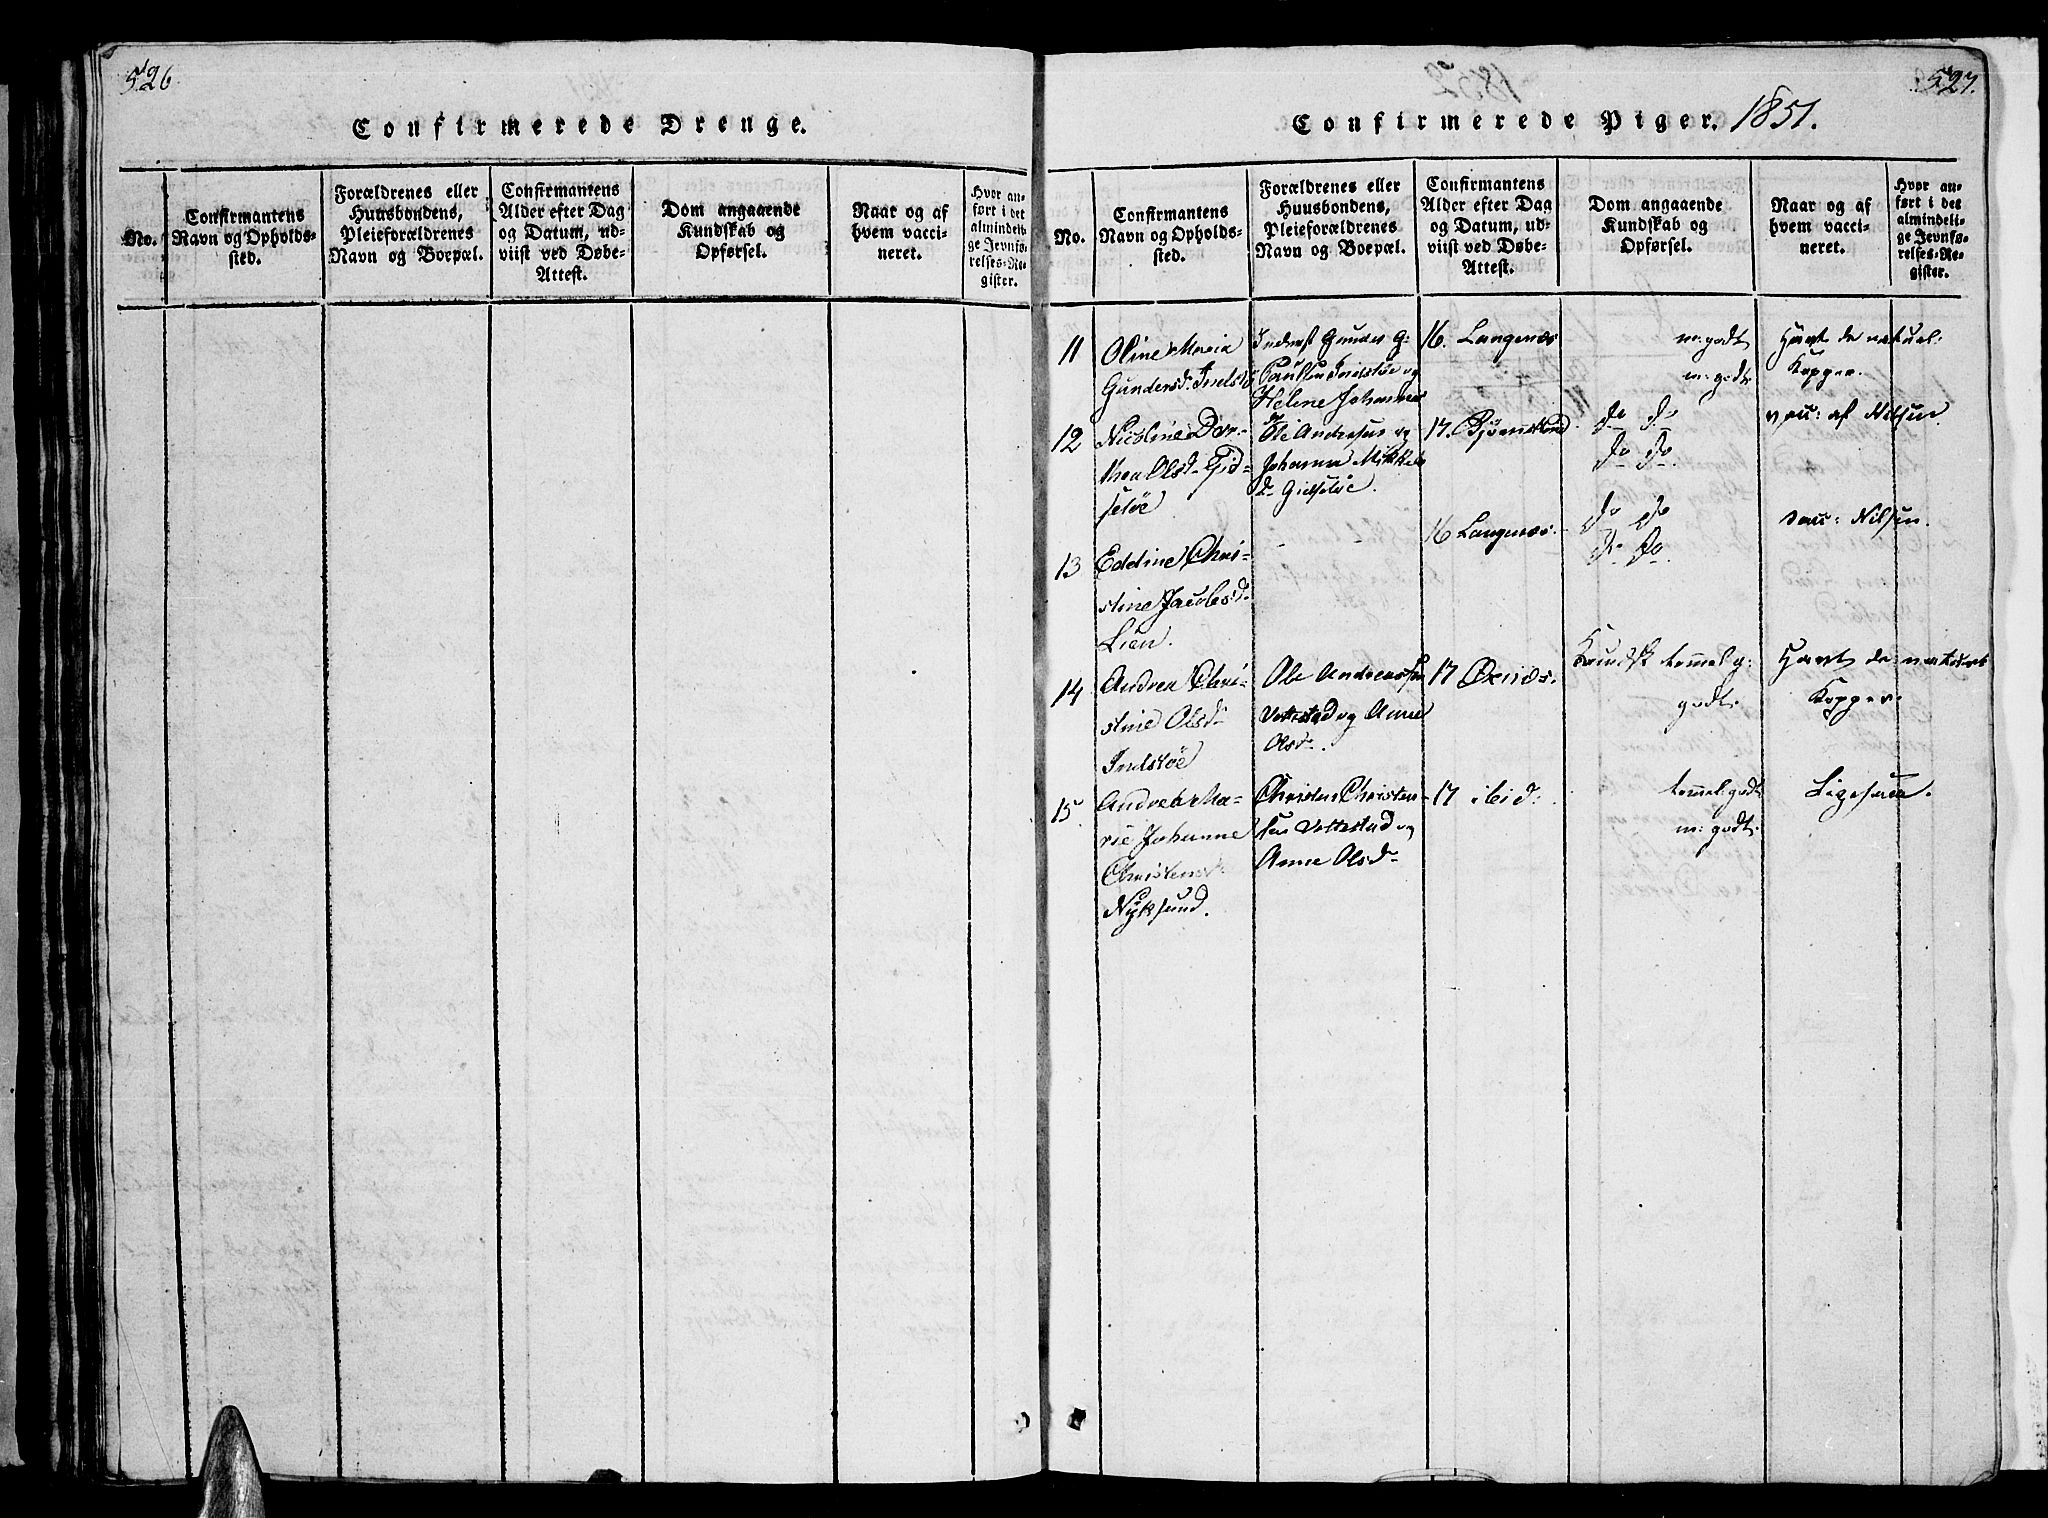 526
Confirmerede Drenge.
No.
Confirmantens
Navn og Opholds-
sted.
Forældrenes eller
Huusbondens,
Pleieforældrenes
Navn og Boepæl.
Confirmantens
Alder efter Dag
og Datum, ud-
viist ved Døbe-
Attest.
Dom angaaende
Kundskab og
Opførsel.
Naar og af
hvem vacci-
neret.
Hvor an-
ført i det
almindeli-
ge Jevnfø-
relses-Re-
gister.
527.
Confirmerede Piger. 1851.
No.
Confirmantens
Navn og Opholds-
sted.
Forældrenes eller
Huusbondens,
Pleieforældrenes
Navn og Boepæl.
Confirmantens
Alder efter Dag
og Datum, ud-
viist ved Døbe-
Attest.
Dom angaaende
Kundskab og
Opførsel.
Naar og af
hvem vacci-
neret.
Hvor an-
ført i det
almindeli-
ge Jevnfø-
relses-Re-
gister.
11
Oline Maria
Gundersd. Indstø
Inderst Gunder G:
Paulsen Indstøe og
Helene Johannes
d
16. Langenæs
m: godt
m: godt
Havt de naturl:
Kopper.
12
Nicoline Dor-
thea Olsd. Gid-
seløe
Ole Andresen og
Johanna Mikkels
d. Gidseløe.
17. Bjørnskind
Do Do
Do Do
vac: af Nilsen.
13
Eddine Chri-
stine Jacobsd.
Lien.
16 Langenæs.
Do Do
Do Do
vac: Nilsen.
14
Andrea Chri-
stine Olsd.
Indstøe
Ole Andreassen
Vottestad og Anne
Olsd.
17 Øxnæs.
Kundsk temmelig:
godt.
Havt de naturl
Kopper.
15.
Andrea Ma-
rie Johanne
Christensd.
Nyksund.
Christen Christen-
sen Vottestad og
Anne Olsd.
17 ibid:
temmel: godt
m: godt.
Ligesaa.